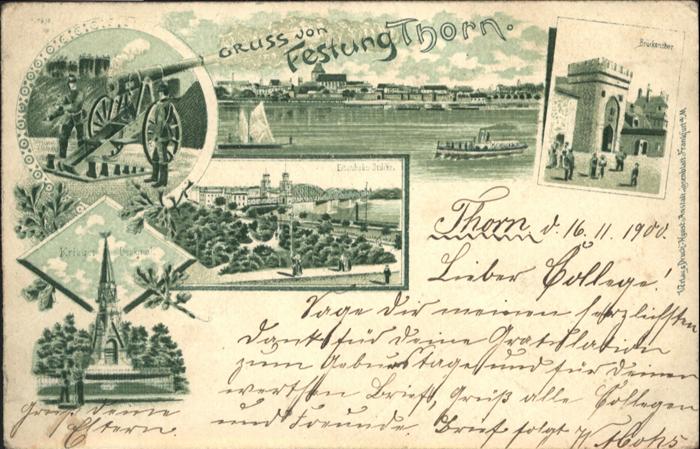 Gruss von
Festung Thorn.
Brückenthor
Eisenbahn-Brücke.
Krieger
Thorn d. 16.11.1900.
Lieber College!
Sage Dir meinen herzlichsten
Dank für deine Gratulation
zum Geburtstage und für deinen
werthen Brief, Grüß alle Collegen
und Freunde. Brief folgt
Grüß deine
Eltern.